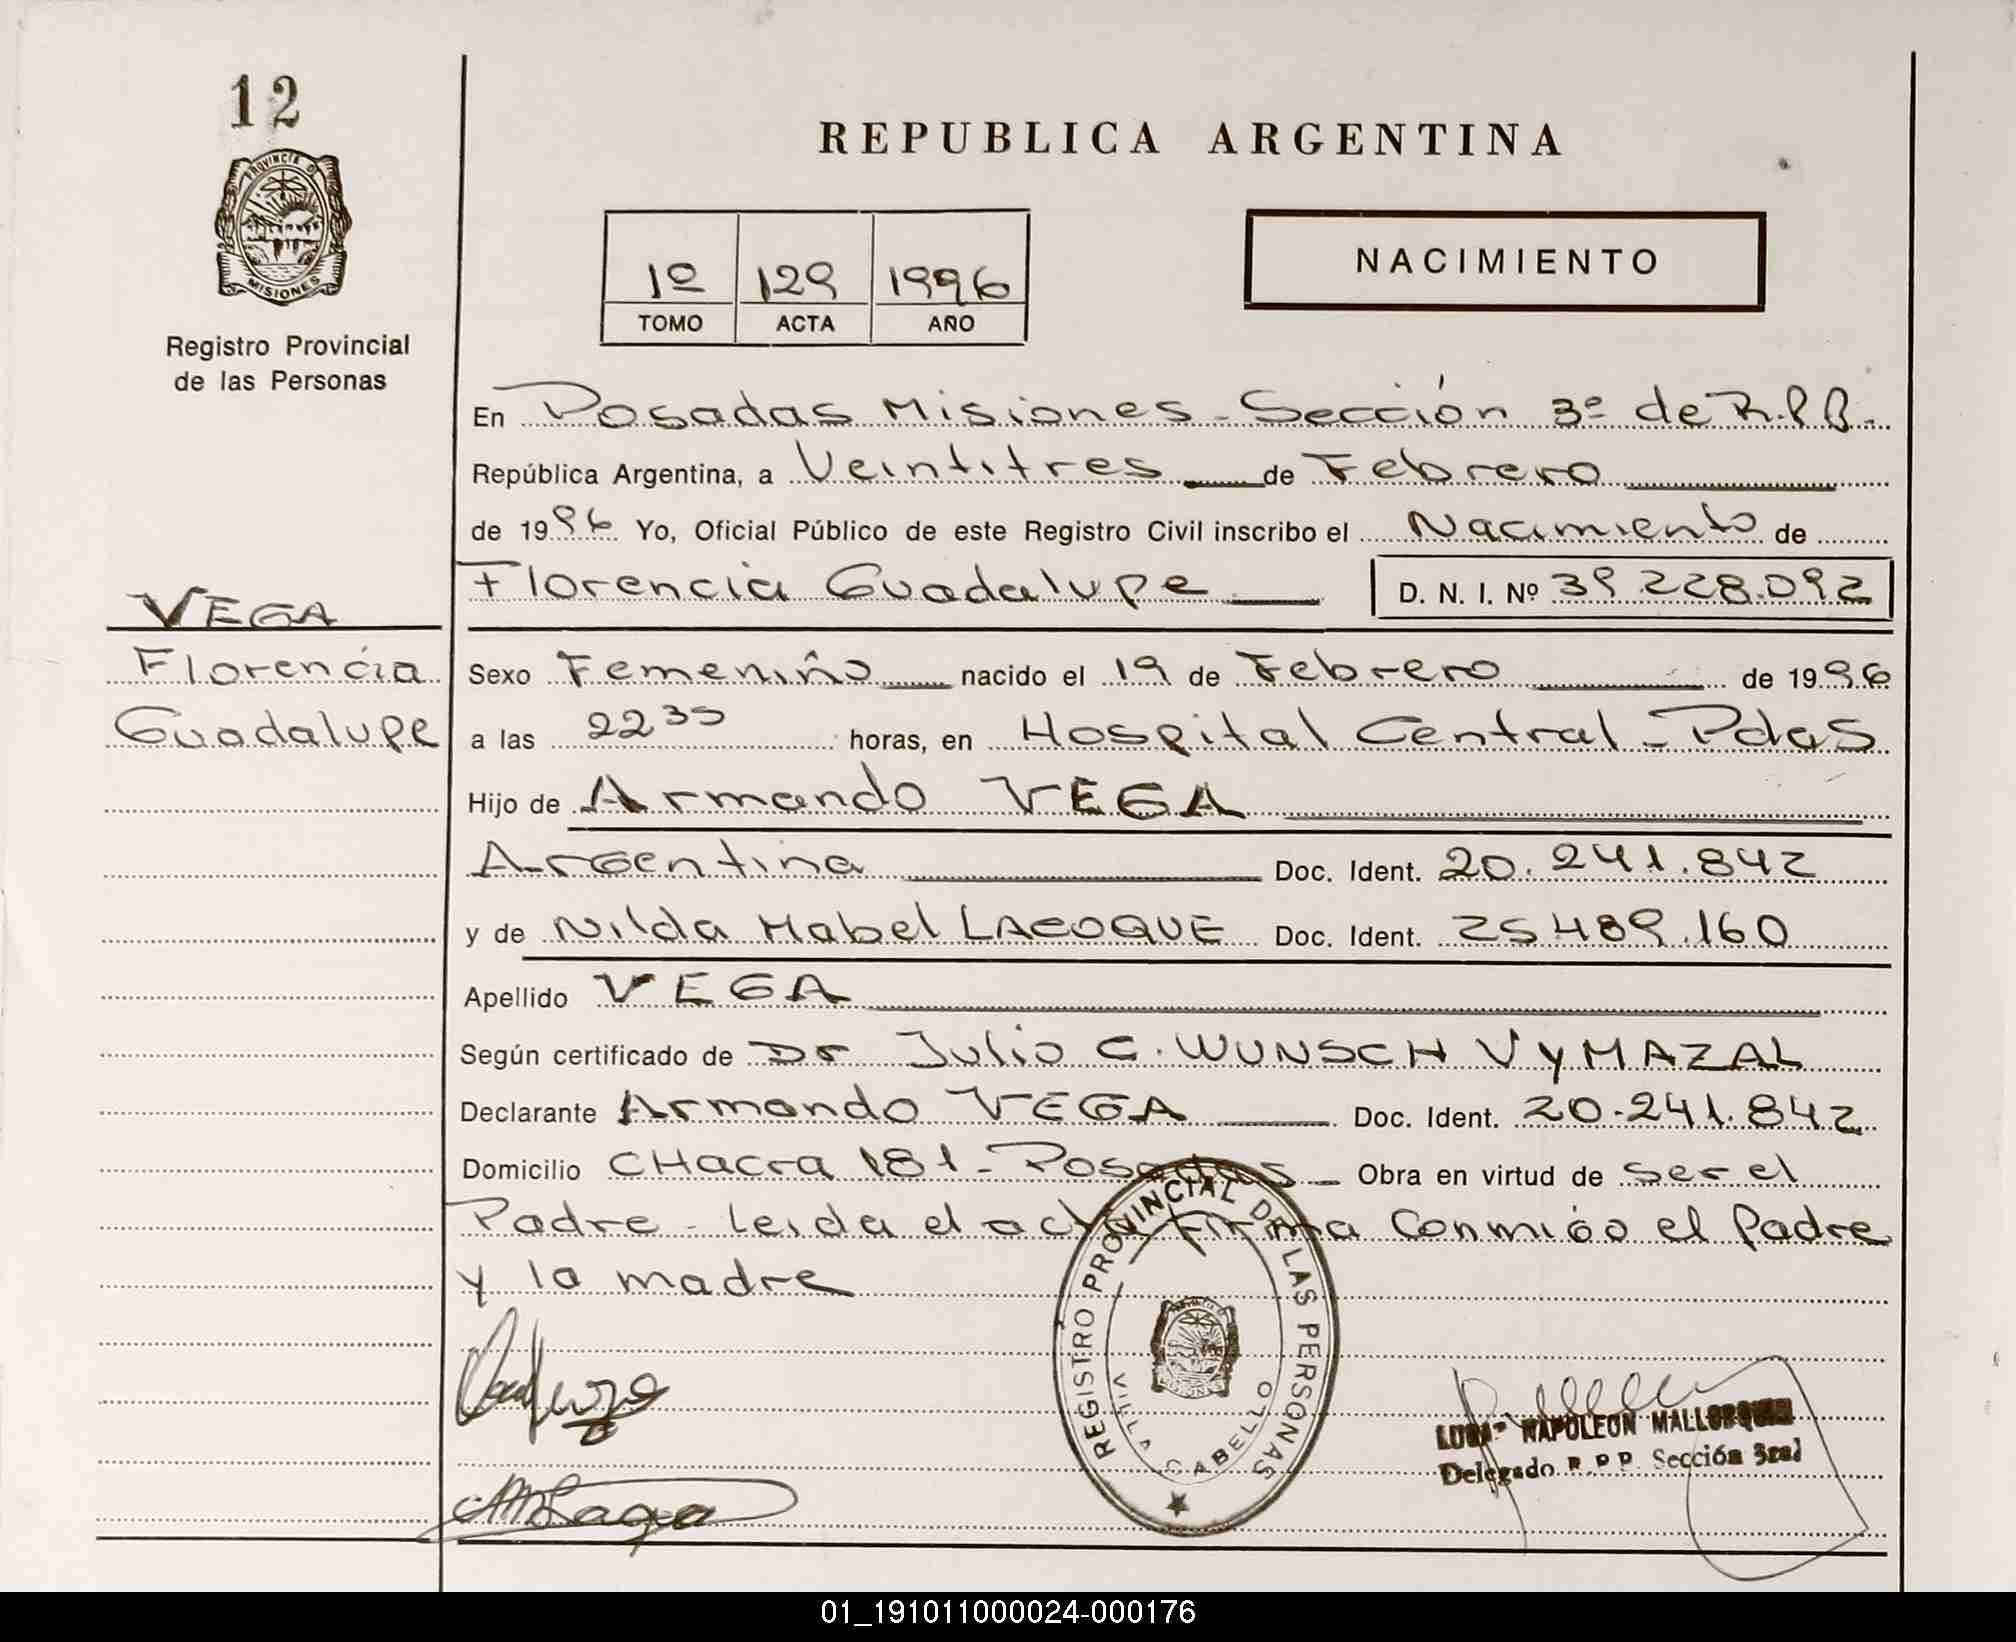 12
PROVINCIA DE
MISIONES
Registro Provincial
de las Personas
REPUBLICA ARGENTINA
1º 129 1996
TOMO ACTA AÑO
NACIMIENTO
En Posadas Misiones - Sección 3º de R.P.P.-
República Argentina, a Veintitres de Febrero
de 1996 Yo, Oficial Público de este Registro Civil inscribo el Nacimiento de
Florencia Guadalupe D. N. I. Nº 39.228.092
VEGA
Florencia
Guadalupe
Sexo Femenino nacido el 19 de Febrero de 1996
a las 22 35 horas, en Hospital Central - Pdas
Hijo de Armando VEGA
Argentina Doc. Ident. 20.241.842
y de Nilda Mabel LACOQUE Doc. Ident. 25.489.160
Apellido VEGA
Según certificado de Dr Julio C. WUNSCH VYMAZAL
Declarante Armando VEGA Doc. Ident. 20.241.842
Domicilio CHacra 181 - Posadas Obra en virtud de ser el
Padre - Leida el acta Firma Conmigo el Padre
y la madre
REGISTRO PROVINCIAL DE LAS PERSONAS
VILLA CABELLO
NAPOLEON MALLORQUIN
Delegado R.P.P. Sección 3ra
01_191011000024-000176